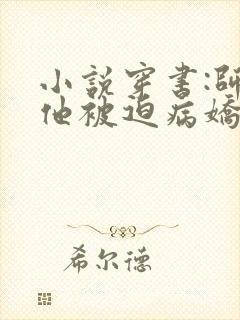 小説穿書:師
他被迫病嬌
希尔德